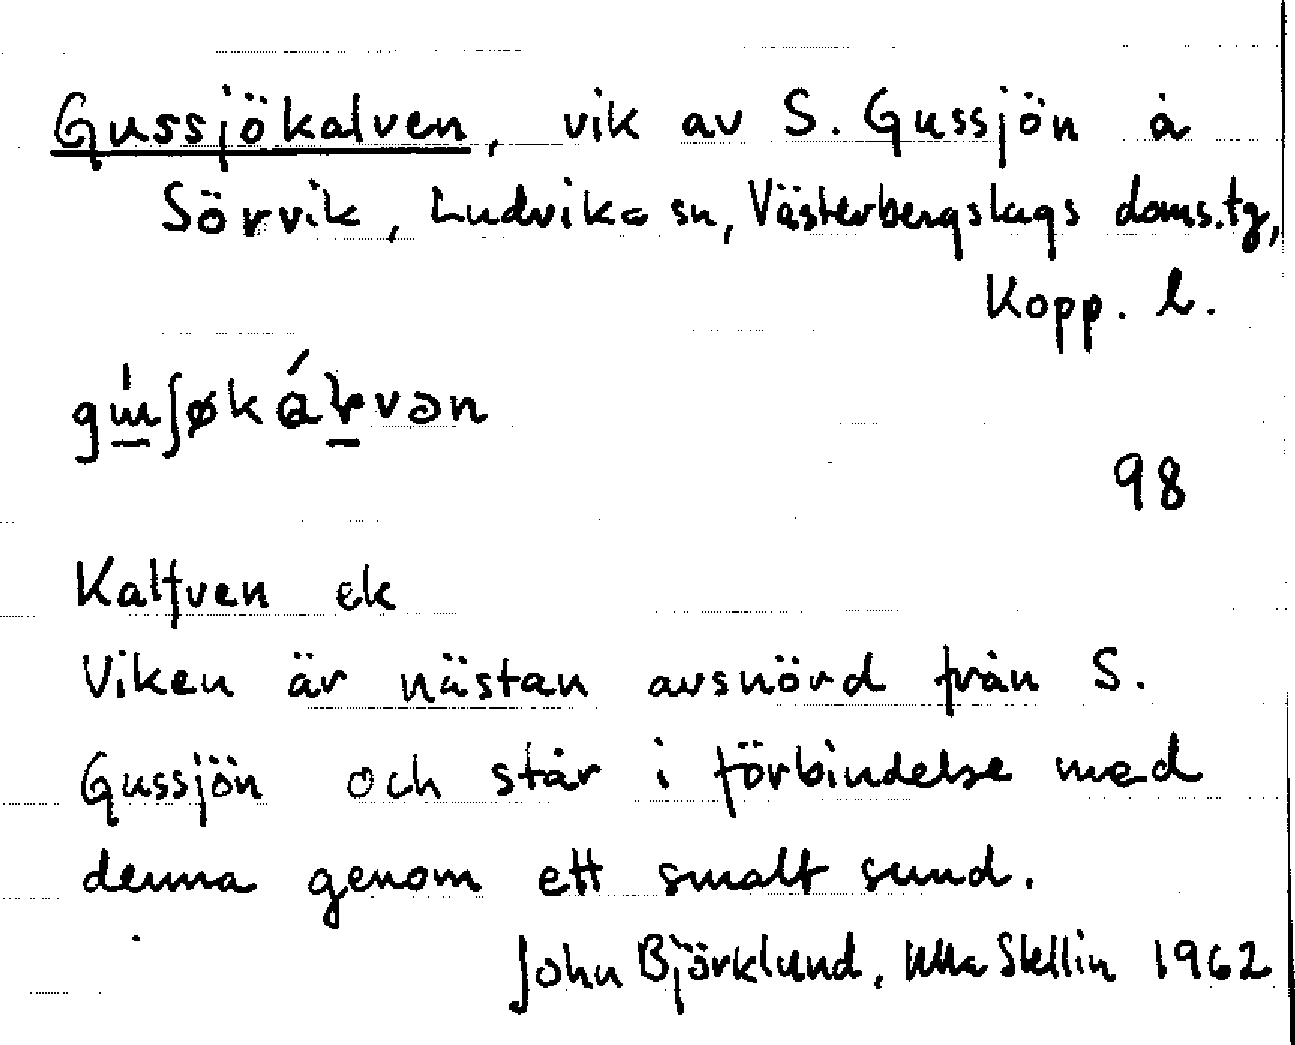 Gussjökalven, vik av S. Gussjön å
Sörvik, Ludvika sn, Västerbergslags doms.tg,
Kopp. l.
98
Kalfven ek
Viken är nästan avsnörd från S.
Gussjön och står i förbindelse med
denna genom ett smalt sund.
John Björklund, Ulla Stellin 1962